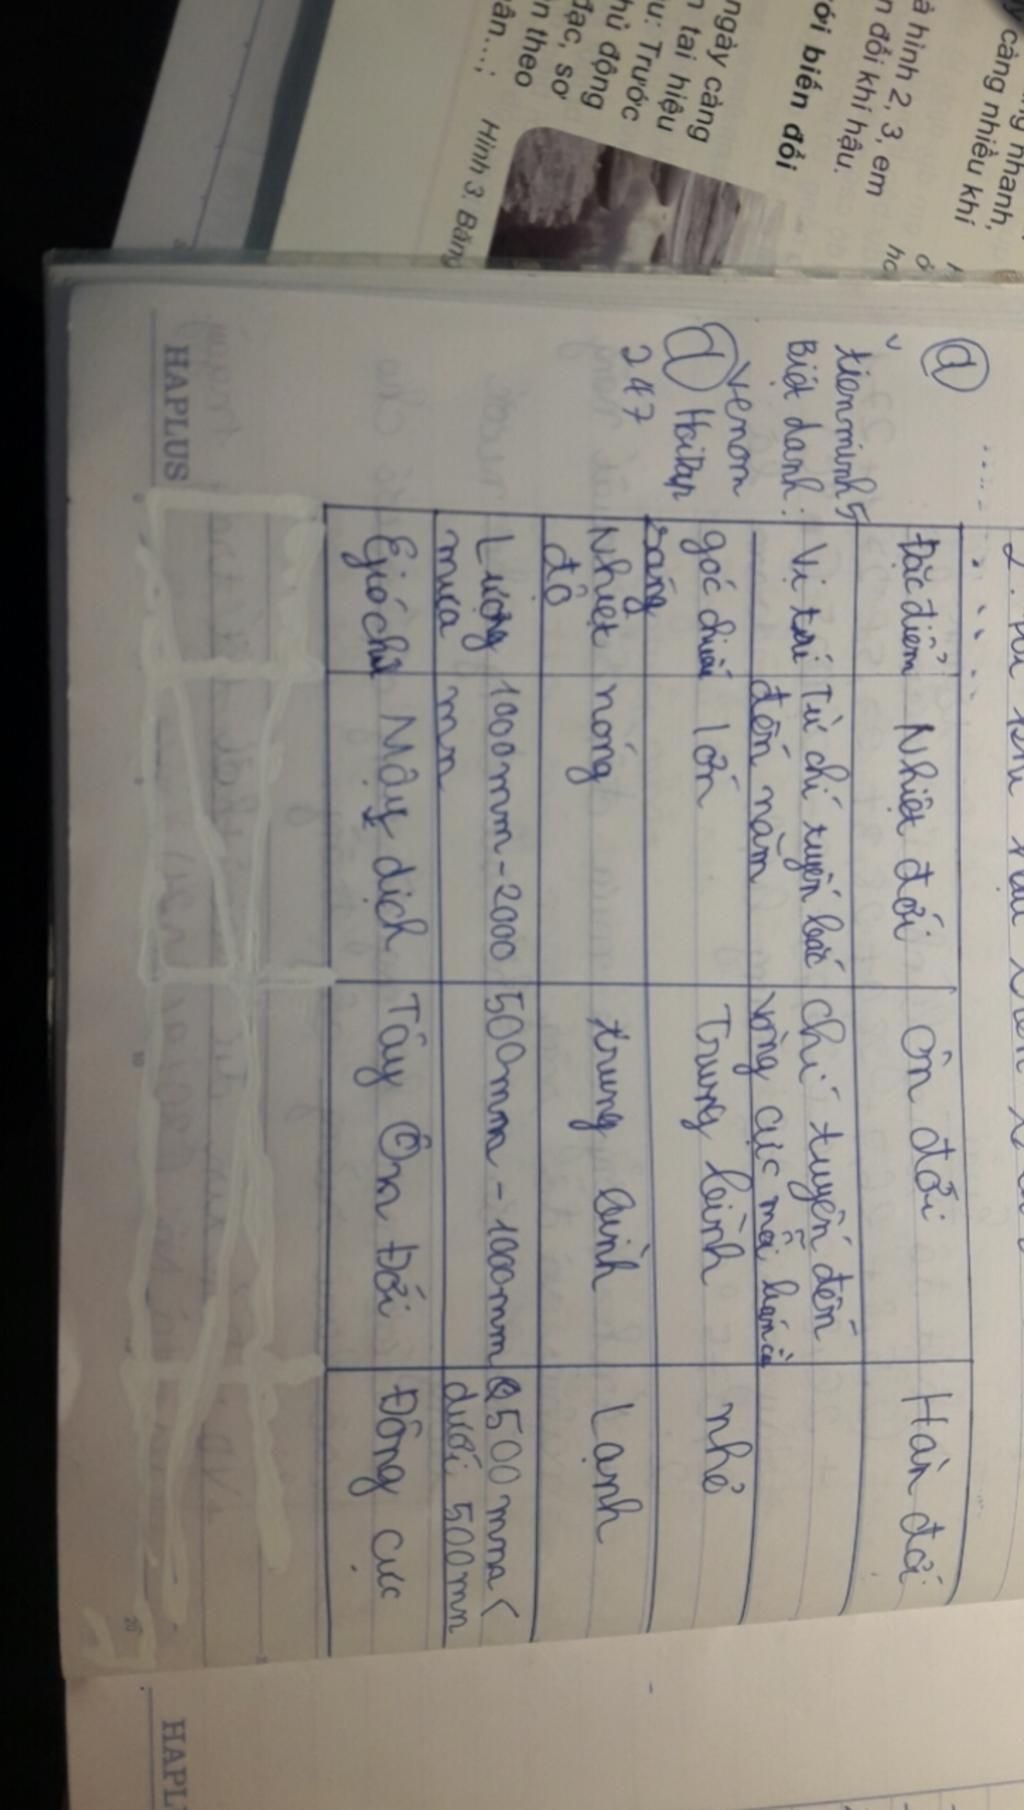 ng nhanh,
càng nhiều khí
à hình 2, 3, em
n đổi khí hậu.
ới biến đổi
ngày càng
n tai hiệu
ư: Trước
hủ động
đạc, sơ
n theo
ân...;
Hình 3. Băng
@
tienminh5
Biệt danh:
venom
@ Hoidap
247
Đặc điểm Nhiệt đới Ôn đới Hàn đới
Vị trí Từ chí tuyến bắc chí tuyến đến
đến nằm vòng cực mỗi bán
góc chiếu lớn Trung bình nhỏ
sáng
Nhiệt nóng trung bình Lạnh
độ
Lượng 1000mm-2000 500mm-1000mm 500mm<
mưa mm dưới 500mm
Gió Mậy dịch Tây Ôn Đới Đông cực
HAPLUS
HAPL